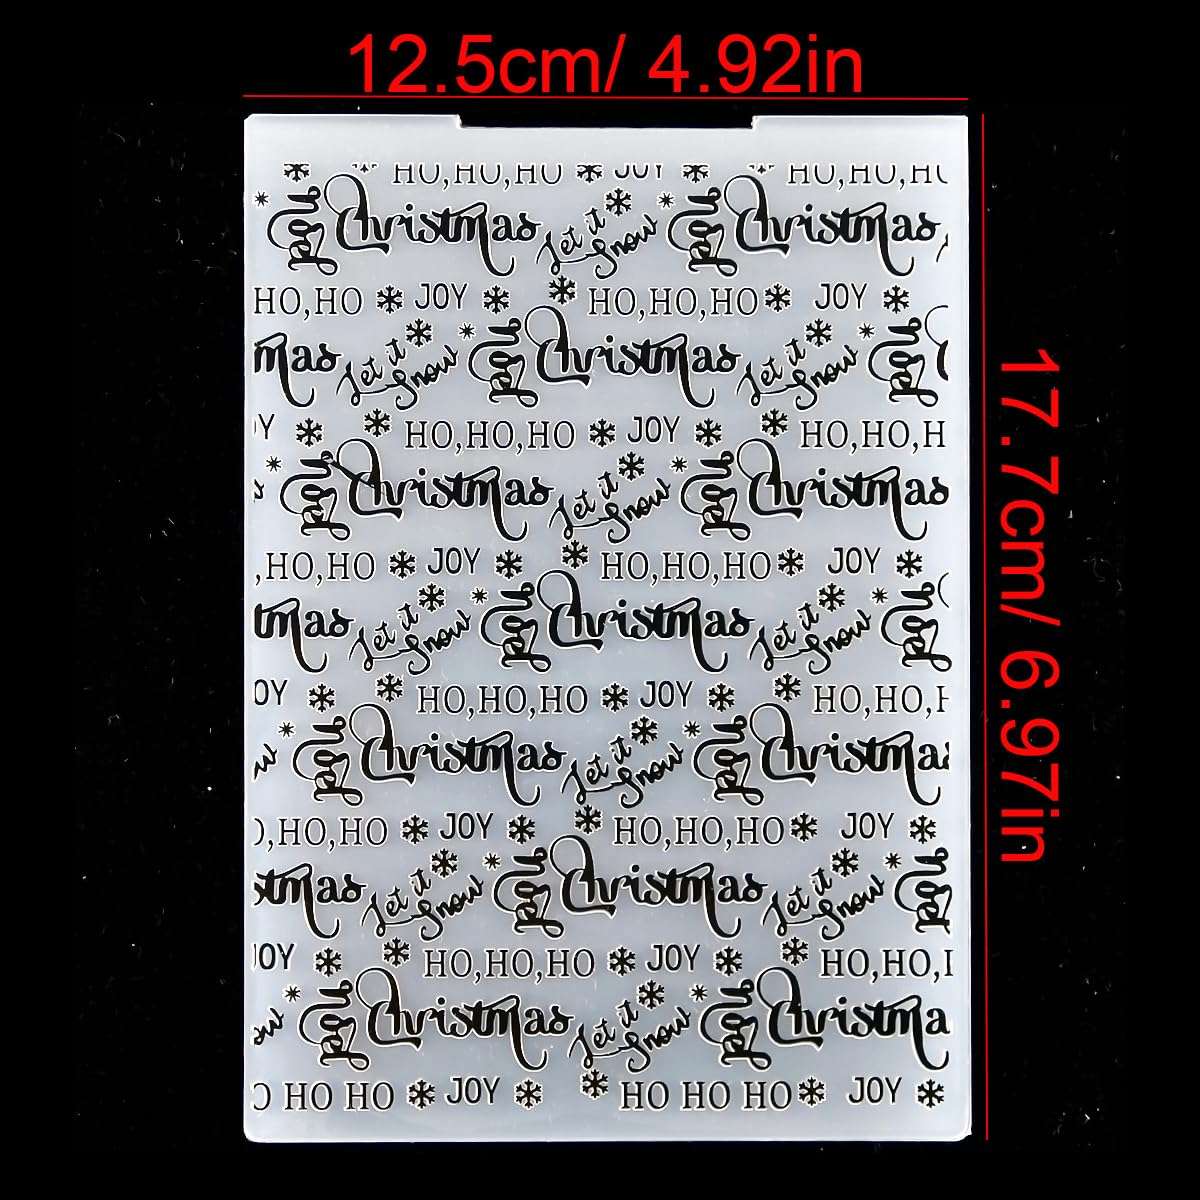 12.5cm/ 4.92in
HO,HO,HO JOY HO,HO,H
Noel Christmas Let it Snow Noel Christmas
HO,HO JOY HO,HO,HO JOY
mas Let it Snow Noel Christmas Let it Snow Noel
Y HO,HO,HO JOY HO,HO,H
Noel Christmas Let it Snow Noel Christmas
,HO,HO JOY HO,HO,HO JOY
tmas Let it Snow Noel Christmas Let it Snow Noel
OY HO,HO,HO JOY HO,HO,H
w Noel Christmas Let it Snow Noel Christma
O,HO,HO JOY HO,HO,HO JOY
stmas Let it Snow Noel Christmas Let it Snow Noel
JOY HO,HO,HO JOY HO,HO,H
ow Noel Christmas Let it Snow Noel Christma
O HO HO JOY HO HO HO JOY
17.7cm/ 6.97in